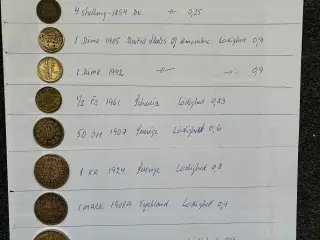 4 Skilling - 1854 DK -"- 0,25
1 Dime 1905 United States of America Lødighed 0,9
1 Dime 1942 -"- -"- 0,9
1/2 Fr 1961 Lødighed 0,83
50 Öre 1907 Sverige Lødighed 0,6
1 KR 1924 Sverige Lødighed 0,8
1 MARK 1908A Tyskland Lødighed 0,9